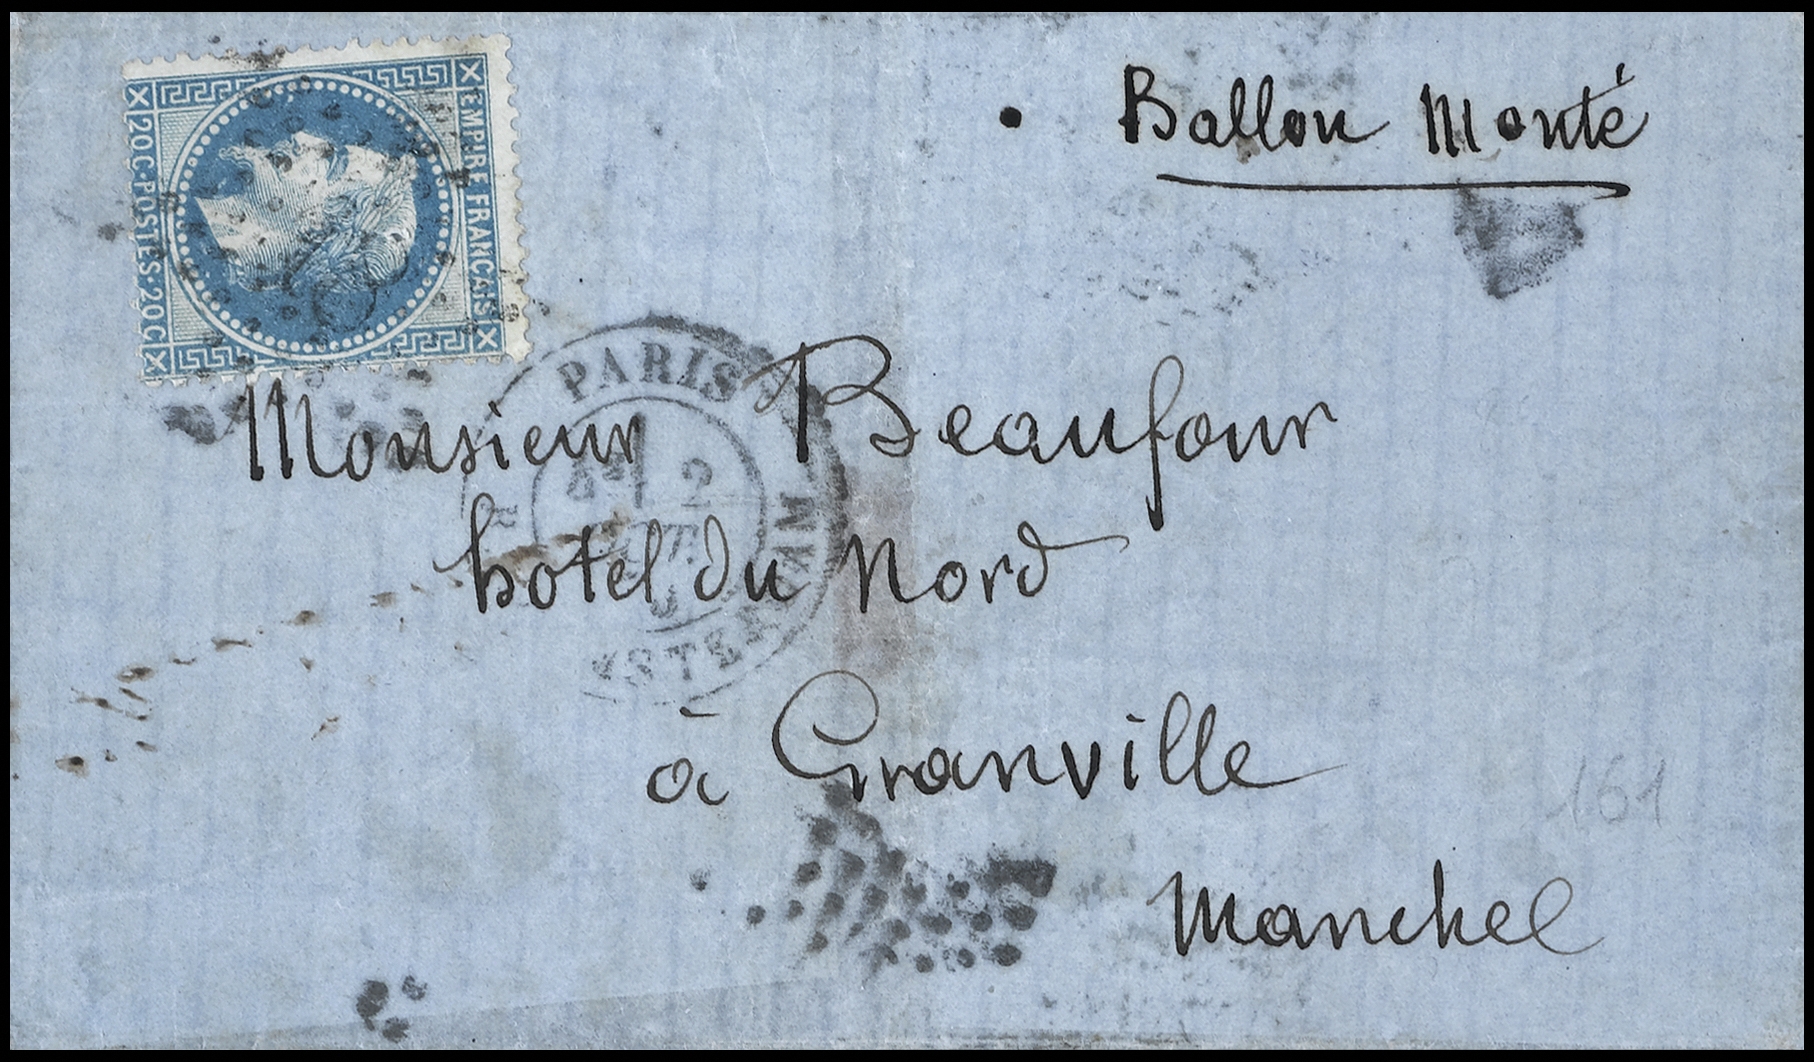 EMPIRE FRANÇAIS
20C·POSTES·20C
Ballon Monté
PARIS
2
Monsieur Beaufour
hotel du Nord
à Granville
161
Manche